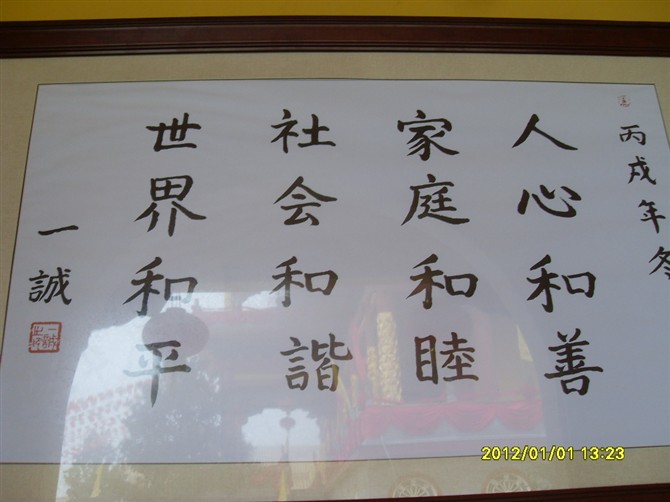 丙戌年冬
人心和善
家庭和睦
社会和諧
世界和平
一誠
2012/01/01 13:23